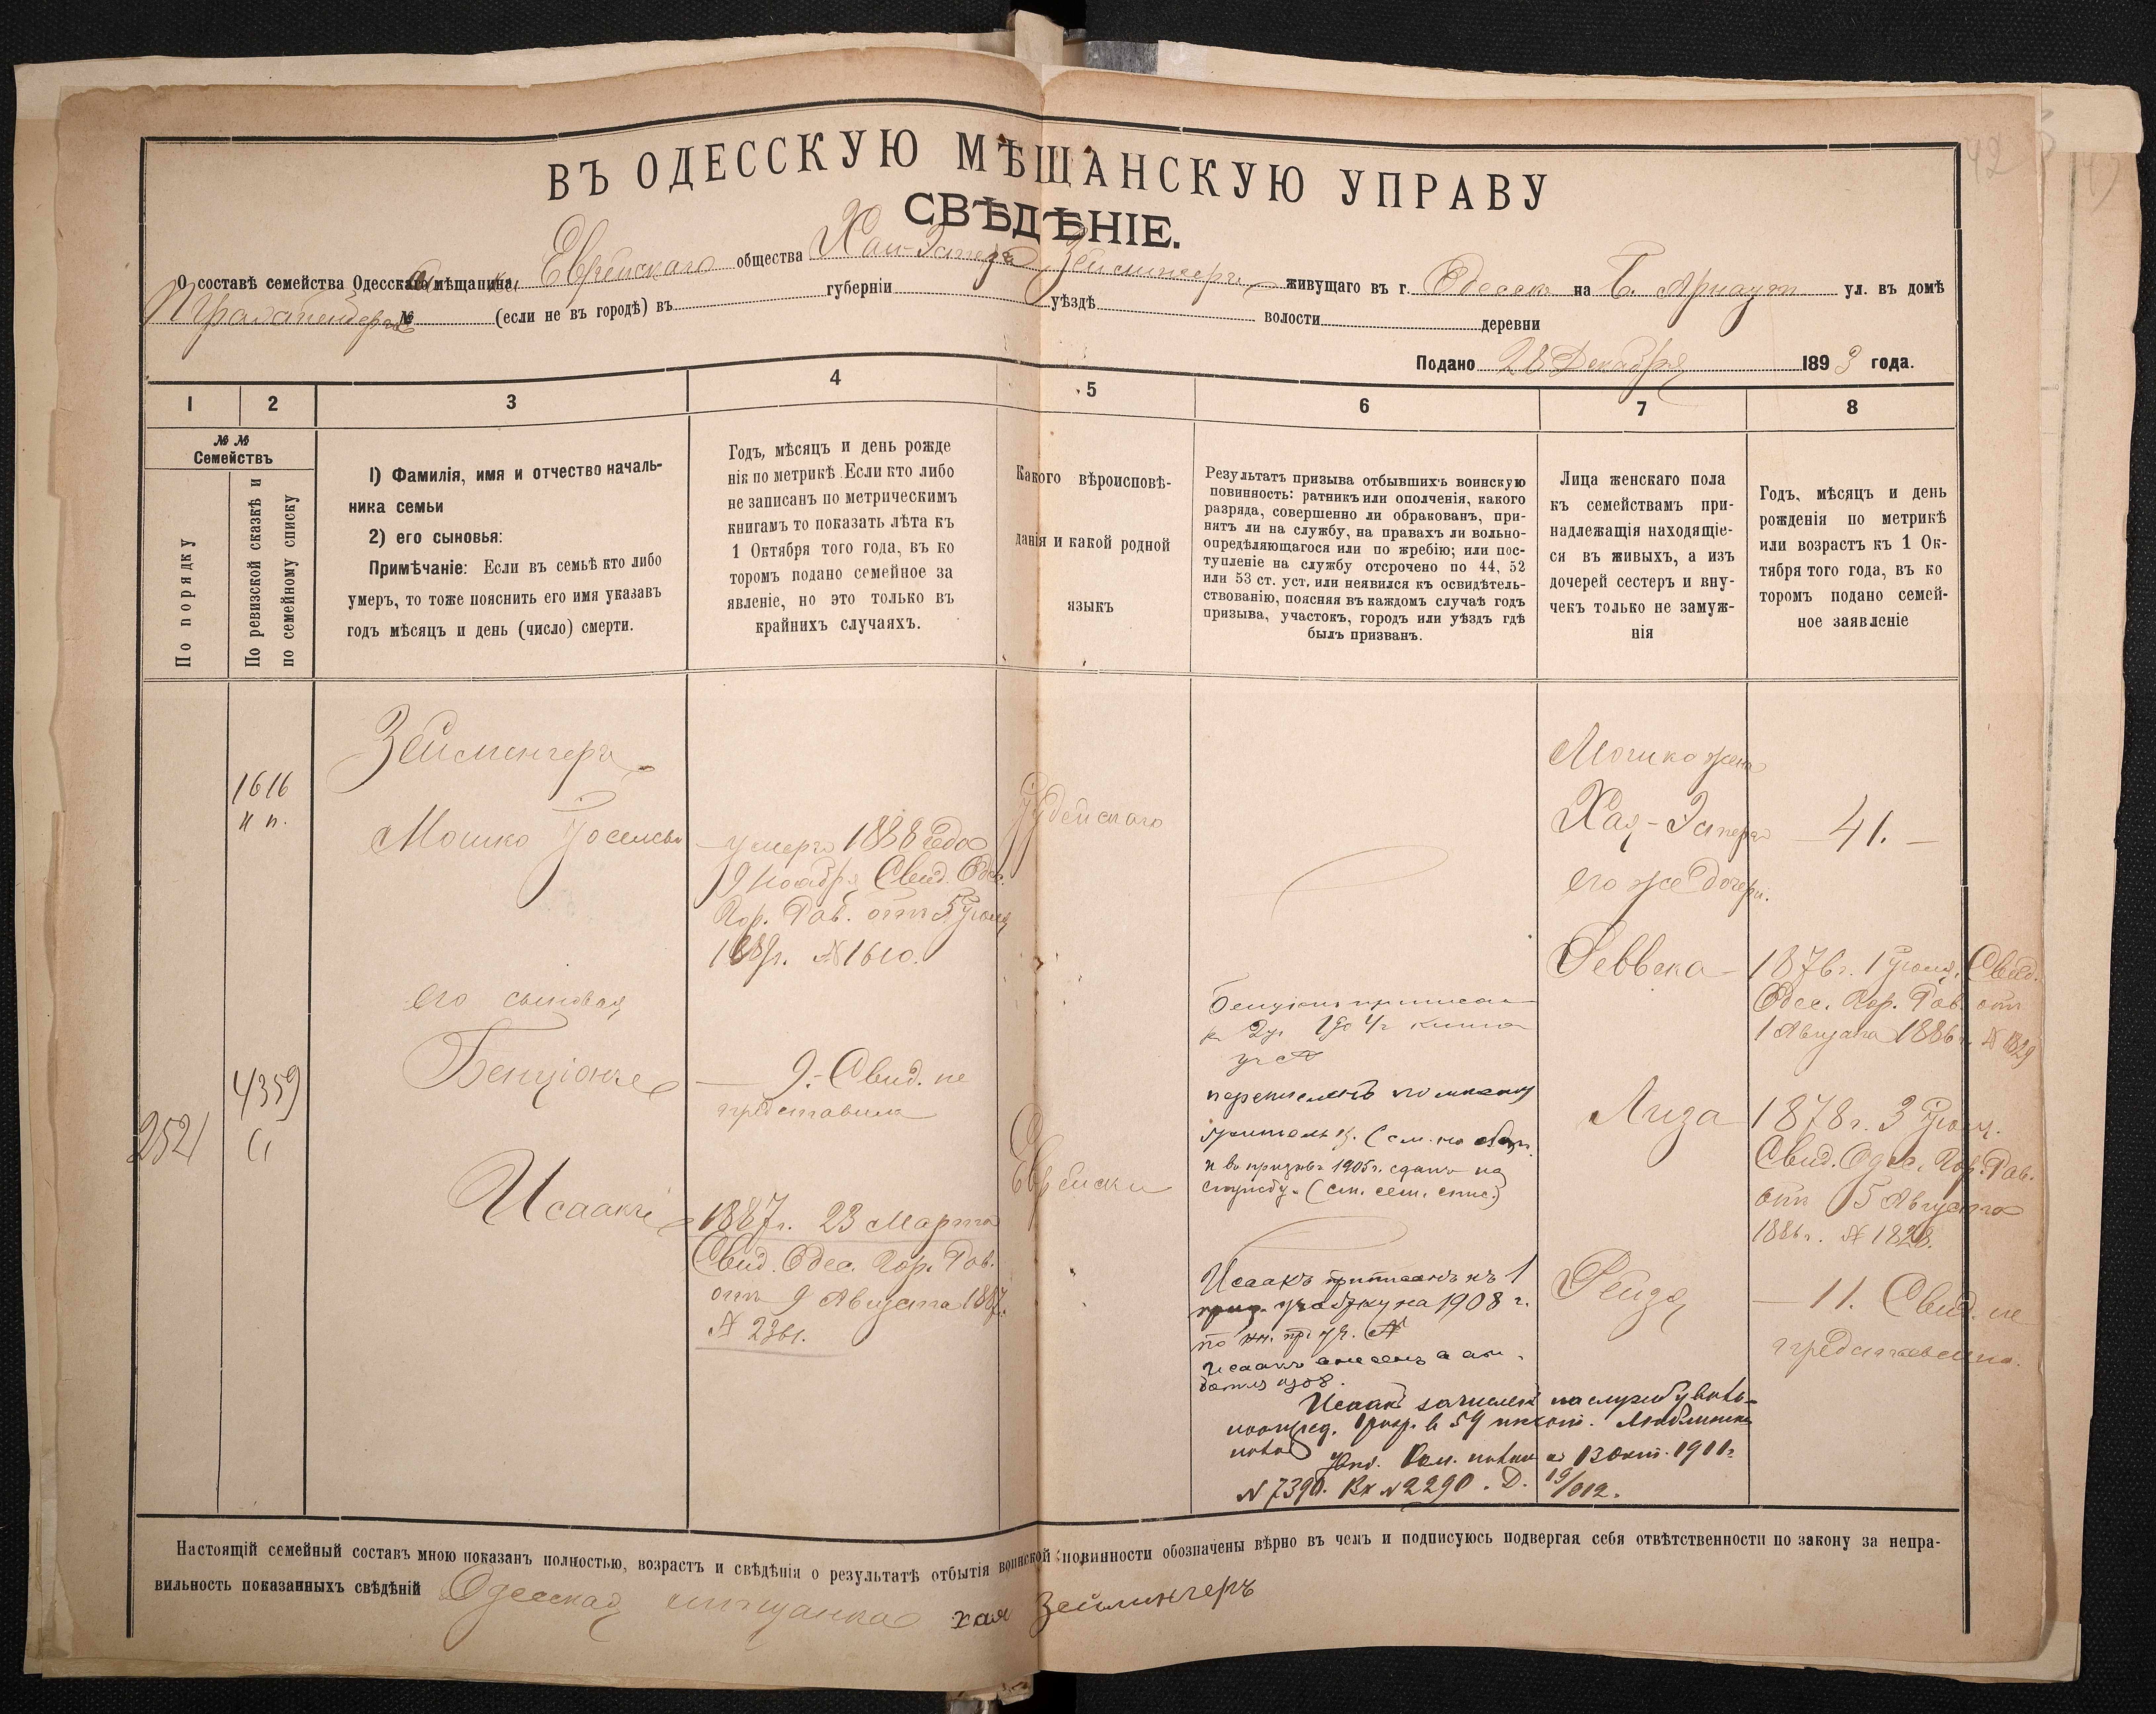 ВЪ ОДЕССКУЮ МѢЩАНСКУЮ УПРАВУ
СВѢДѢНІЕ.
О составѣ семейства Одесск мѣщанина Еврейскаго общества Хаи-Эстера Зейлингеръ живущаго въ г. Одессѣ на Б. Арнаут ул. въ домѣ
№ (если не въ городѣ) въ губерніи уѣздѣ волости деревни
Подано 28 Декабря 1893 года.
1 2 3 4 5 6 7 8
№ № Семействъ
По порядку
По ревизской сказкѣ и
по семейному списку
1) Фамилія, имя и отчество началь-
ника семьи
2) его сыновья:
Примѣчаніе: Если въ семьѣ кто либо
умеръ, то тоже пояснить его имя указавъ
годъ мѣсяцъ и день (число) смерти.
Годъ, мѣсяцъ и день рожде
нія по метрикѣ. Если кто либо
не записанъ по метрическимъ
книгамъ то показать лѣта къ
1 Октября того года, въ ко
торомъ подано семейное за
явленіе, но это только въ
крайнихъ случаяхъ.
Какого вѣроисповѣ-
данія и какой родной
языкъ
Результатъ призыва отбывшихъ воинскую
повинность: ратникъ или ополченія, какого
разряда, совершенно ли обракованъ, при-
нятъ ли на службу, на правахъ ли вольно-
опредѣляющагося или по жребію; или пос-
тупленіе на службу отсрочено по 44, 52
или 53 ст. уст, или неявился къ освидѣтель-
ствованію, поясняя въ каждомъ случаѣ годъ
призыва, участокъ, городъ или уѣздъ гдѣ
былъ призванъ.
Лица женскаго пола
къ семействамъ при-
надлежащія находящіе-
ся въ живыхъ, а изъ
дочерей сестеръ и вну-
чекъ только не замуж-
нія
Годъ, мѣсяцъ и день
рожденія по метрикѣ
или возрастъ къ 1 Ок-
тября того года, въ ко
торомъ подано семей-
ное заявленіе
1616
и п.
4359
2521
Зейлингеръ
Мошко Іоселевъ
его сыновья
Бенціонъ
Исаакъ
умеръ 1888 года
9 Ноября Свид. Одес.
Гор. Рав. отъ 5 Іюля
1889г. № 1610.
9. Свид. не
представила
1887г. 23 Марта
Свид. Одес. Гор. Рав.
отъ 9 Августа 1887.
№ 2361.
Іудейскаго
Еврейски
Бенціонъ приписан
перечисленъ по
(см. на обор.
и въ призывъ 1905г. сданъ на
службу. (см. сем. спис.)
Исаакъ приписанъ къ 1
приз. участку на 1908 г.
по
Исаакъ
Исаакъ зачисленъ на службу воль-
ноопред. 1 разр. в 59 пехот. Люблинскій
полкъ
Ком. полка 13 окт. 1911г.
№ 7390. Вх № 2290. Д. 19/912.
Мошко жена
Хая-Эстера
его же дочери.
Реввека
Лиза
Рейзя
41.
1876г. 1 Іюля. Свид.
Одес. Гор. Рав. отъ
1 Августа 1886г. № 1829
1878г. 3 Іюля.
Свид. Одес. Гор. Рав.
отъ 5 Августа
1886г. № 1828.
11. Свид. не
представлено.
Настоящій семейный составъ мною показанъ полностью, возрастъ и свѣдѣнія о результатѣ отбытія воинской повинности обозначены вѣрно въ чемъ и подписуюсь подвергая себя отвѣтственности по закону за непра-
вильность показанныхъ свѣдѣній Одесская мѣщанка хая Зейлингеръ